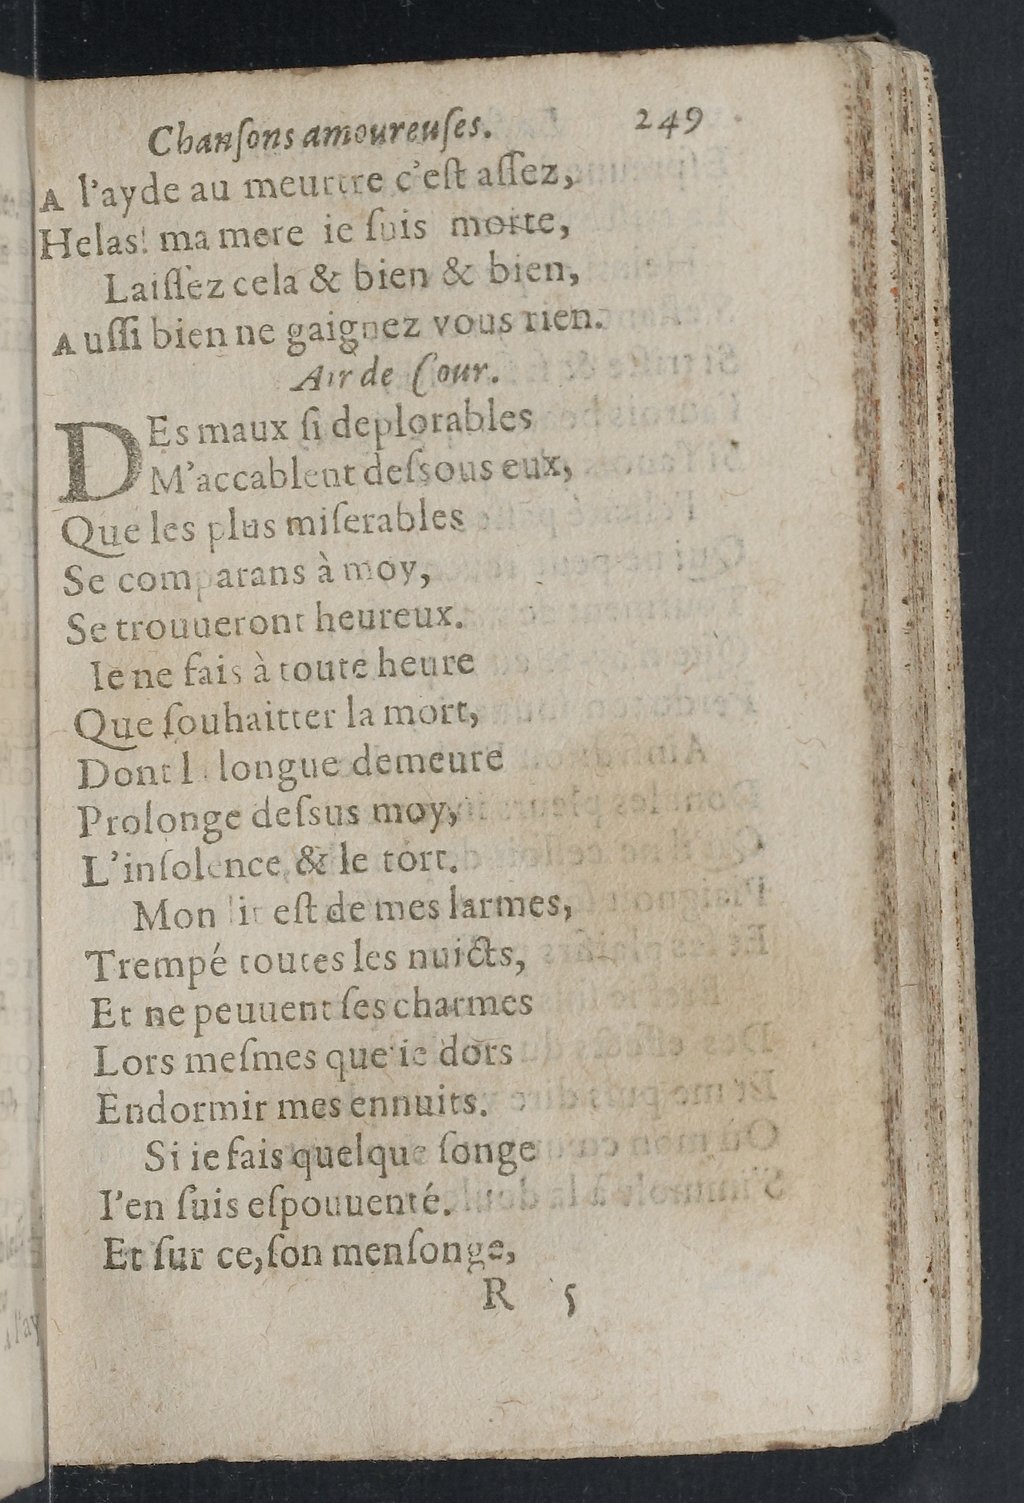 Chanſons amoureuſes. 249
A l'ayde au meurtre c'eſt aſſez,
Helas! ma mere ie ſuis morte,
Laiſſez cela & bien & bien,
Auſſi bien ne gaignez vous rien.
Air de Cour.
DEs maux ſi deplorables
M'accablent deſſous eux,
Que les plus miſerables
Se comparans à moy,
Se trouueront heureux.
Ie ne fais à toute heure
Que ſouhaitter la mort,
Dont l longue demeure
Prolonge deſſus moy,
L'inſolence & le tort.
Mon lit eſt de mes larmes,
Trempé toutes les nuicts,
Et ne peuuent ſes charmes
Lors meſmes que ie dors
Endormir mes ennuits.
Si ie fais quelque ſonge
I'en ſuis eſpouuenté.
Et ſur ce, ſon menſonge,
R 5